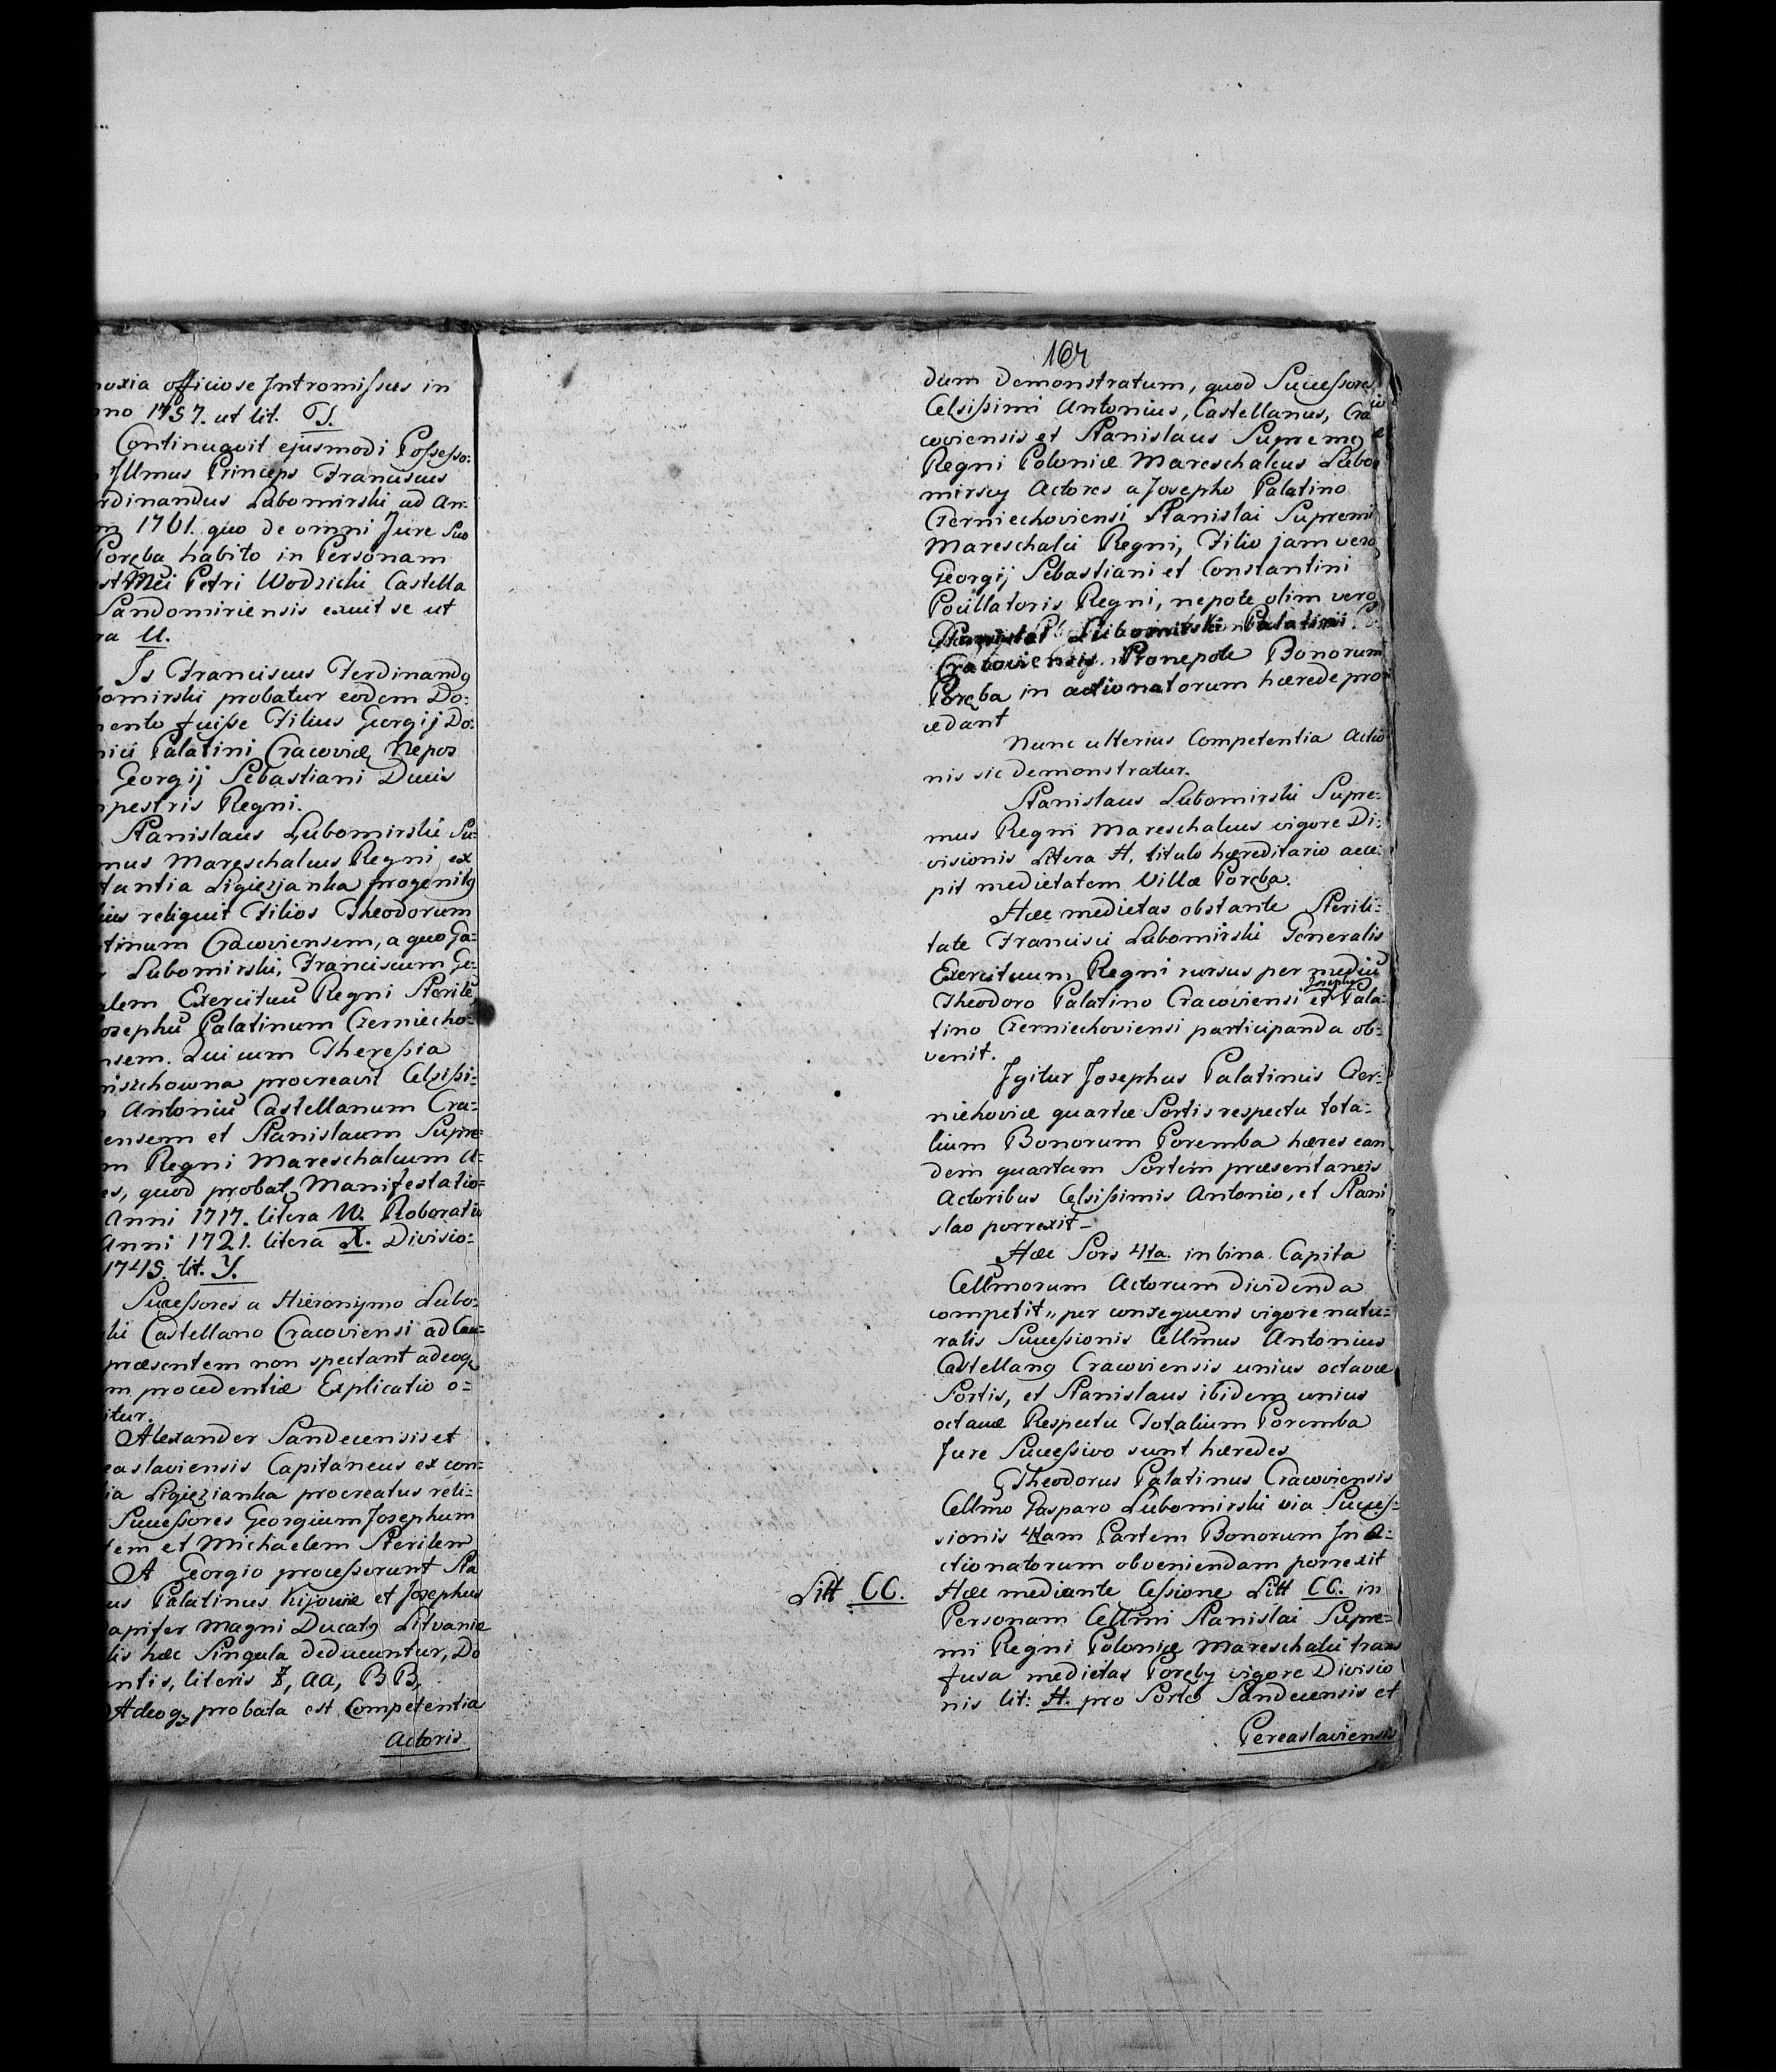 noxia officiose Intromissus in
nno 1757. ut lit. T.
Continuavit ejusmodi Possesso:
Illmus Princeps Franciscus
rdinandus Lubomirski ad An:
m 1761. quo de omni Jure Suo
Poręba habito in Personam
Petri Wodzicki Castella
Sandomiriensis exuit se ut
ra U.
Is Franciscus Ferdinandg
bomirski probatur eodem Do:
mento fuisse Filius Georgij Do:
nici Palatini Cracoviæ, Nepos
Georgij Sebastiani Ducis
mpestris Regni.
Stanislaus Lubomirski Su:
mus Mareschalcus Regni ex
tantia Ligięzianka progenitg
ius reliquit Filios Theodorum
tinum Cracoviensem, a quo Ga:
r Lubomirski, Franciscum Ge:
alem Exercituū Regni Sterilē
osephū Palatinum Czerniecho:
nsem. Qui cum Theressia
niszchowna procreavit Celsissi:
Antoniū Castellanum Cra:
ensem et Stanislaum Supre:
m Regni Mareschalcum A:
es, quod probat Manifestatio:
Anni 1717. litera W. Roboratio
Anni 1721. litera X. Divisio:
1745. lit. Y.
Sucessores a Hieronymo Lubo:
ki Castellano Cracoviensi ad Cau=
præsentem non spectant adeoq
m procedentiæ Explicatio o=
itur.
Alexander Sandecensis et
easlaviensis Capitaneus ex con:
ia Ligięzianka procreatus reli:
Successores Georgium Josephum
em et Michaelem Sterilem
A Georgio processerunt Sta
us Palatinus Kijoviæ et Josephus
apifer Magni Ducatg Litvaniæ
lis hæc Singula deducuntur, Do
ntis, literis Z, AA, BB,
Adeoqz probata est Competentia
Actoris
164
dum Demonstratum, quod Successores
Celsissimi Antonius, Castellanus, Cra
coviensis et Stanislaus Supremg
Regni Poloniæ Mareschalcus Lubo
mirscy Actores a Josepho Palatino
Czerniechoviensi Stanislai Supremi
Mareschalci Regni, Filio jam vero
Georgij Sebastiani et Constantini
Pocillatoris Regni, nepote olim vero
Stanislai Lubomirski Palatini
Cracoviensis Pronepote Bonorum
Poręba in actionatorum hærede pro
cedant
Nunc ulterius Competentia Actio
nis sic demonstratur.
Stanislaus Lubomirski Supre:
mus Regni Mareschalcus vigore Di:
visionis Litera H, titulo hæreditario acce:
pit medietatem Villæ Poręba.
Hæc medietas obstante Sterili:
tate Francisci Lubomirski Generalis
Exercituum Regni rursus per mediū
Josepho
Theodoro Palatino Cracoviensi et Pala:
tino Czerniechoviensi participanda ob:
venit.
Igitur Josephus Palatinus Czer:
niehoviæ quartæ Sortis respectu tota:
lium Bonorum Poremba hæres ean
dem quartam Sortem præsentaneis
Actoribus Celsissimis Antonio, et Stani
slao porrexit–
Hæc Sors 4ta. in bina Capita
Cellmorum Actorum dividenda
competit,, per consequens vigore natu=
ralis Successionis Cellmus Antonius
Castellang Cracoviensis unius octavæ
Sortis, et Stanislaus ibidem unius
octavæ Respectu Totalium Poremba
Jure Successivo sunt hæredes
Theodorus Palatinus Cracoviensis
Cellmo Gasparo Lubomirski via Succes=
sionis 4tam Partem Bonorum In a=
ctionatorum obveniendam porrexit
Litt CC. Hæc mediante Cessione Litt CC. in
Personam Cellmi Stanislai Supre=
mi Regni Poloniæ Mareschalci trans
fusa medietas Poręby vigore Divisio
nis lit: H. pro Sorte Sandecensis et
Pereaslaviensis